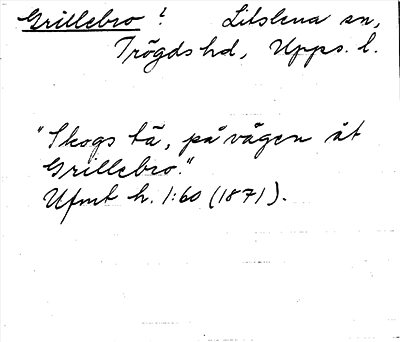 Grillebro ! Litslena sn,
Trögds hd, Upps. l.
"Skogs tä, på vägen åt
Grillebro."
Ufmt h. 1:60 (1871).